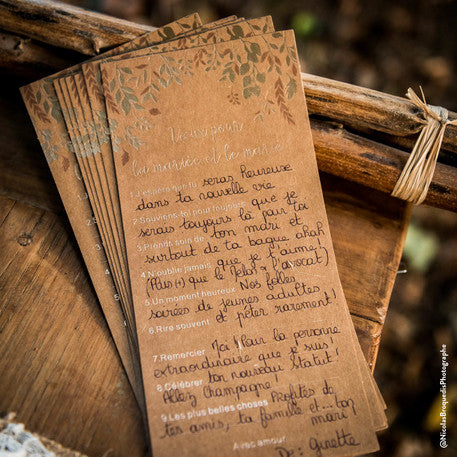 Vœux pour
la mariée et le marié
1.J'espère que tu seras heureuse
dans ta nouvelle vie
2.Souviens-toi pour toujours que je
serais toujours là par toi
3.Prends soin de ton mari et
surtout de ta bague ahah
4.N'oublie jamais que je t'aime!
(Plus (+) que le Pelo à l'avocat)
5.Un moment heureux Nos folles
soirées de jeunes adultes
6.Rire souvent et péter rarement!
7.Remercier Toi! Pour la personne
extraordinaire que je suis!
8.Célébrer ton nouveau statut!
Allez champagne!
9.Les plus belles choses Profites de
tes amis, ta famille et...ton
mari
Avec amour
De: Ginette
@NicolasBroquedisPhotographe